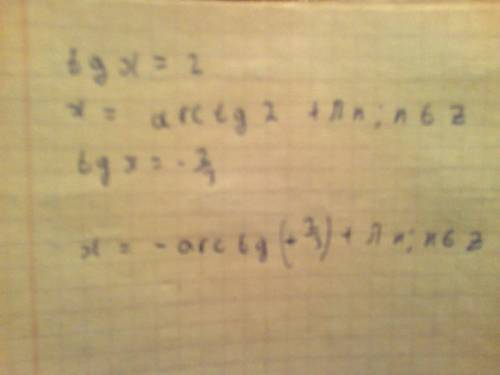 tg x = 2
x = arctg 2 + πn; n ∈ Z
tg x = -
x = - arctg ( + ) + πn; n ∈ Z